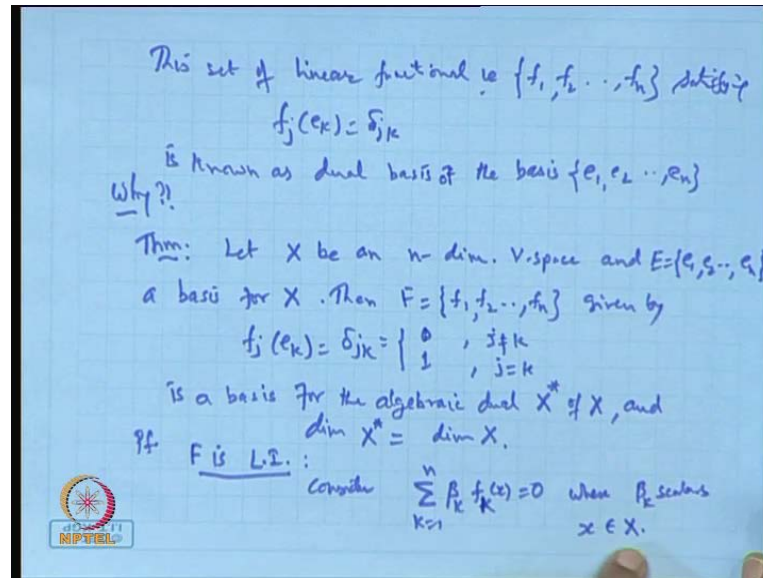 This set of linear functional ie {f1, f2 .., fn} satisfying
fj(ek) = δjk
is known as dual basis of the basis {e1, e2 .., en}
Why?!
Thm: Let X be an n-dim. V.space and E={e1, e2.., en}
a basis for X. Then F = {f1, f2.., fn} given by
fj(ek) = δjk = { 0 , j≠k
1 , j=k
is a basis for the algebraic dual X* of X, and
dim X* = dim X.
Pf F is L.I. :
Consider Σ_{k=1}^{n} βk fk(x) = 0 where βk scalars
x ∈ X.
NPTEL